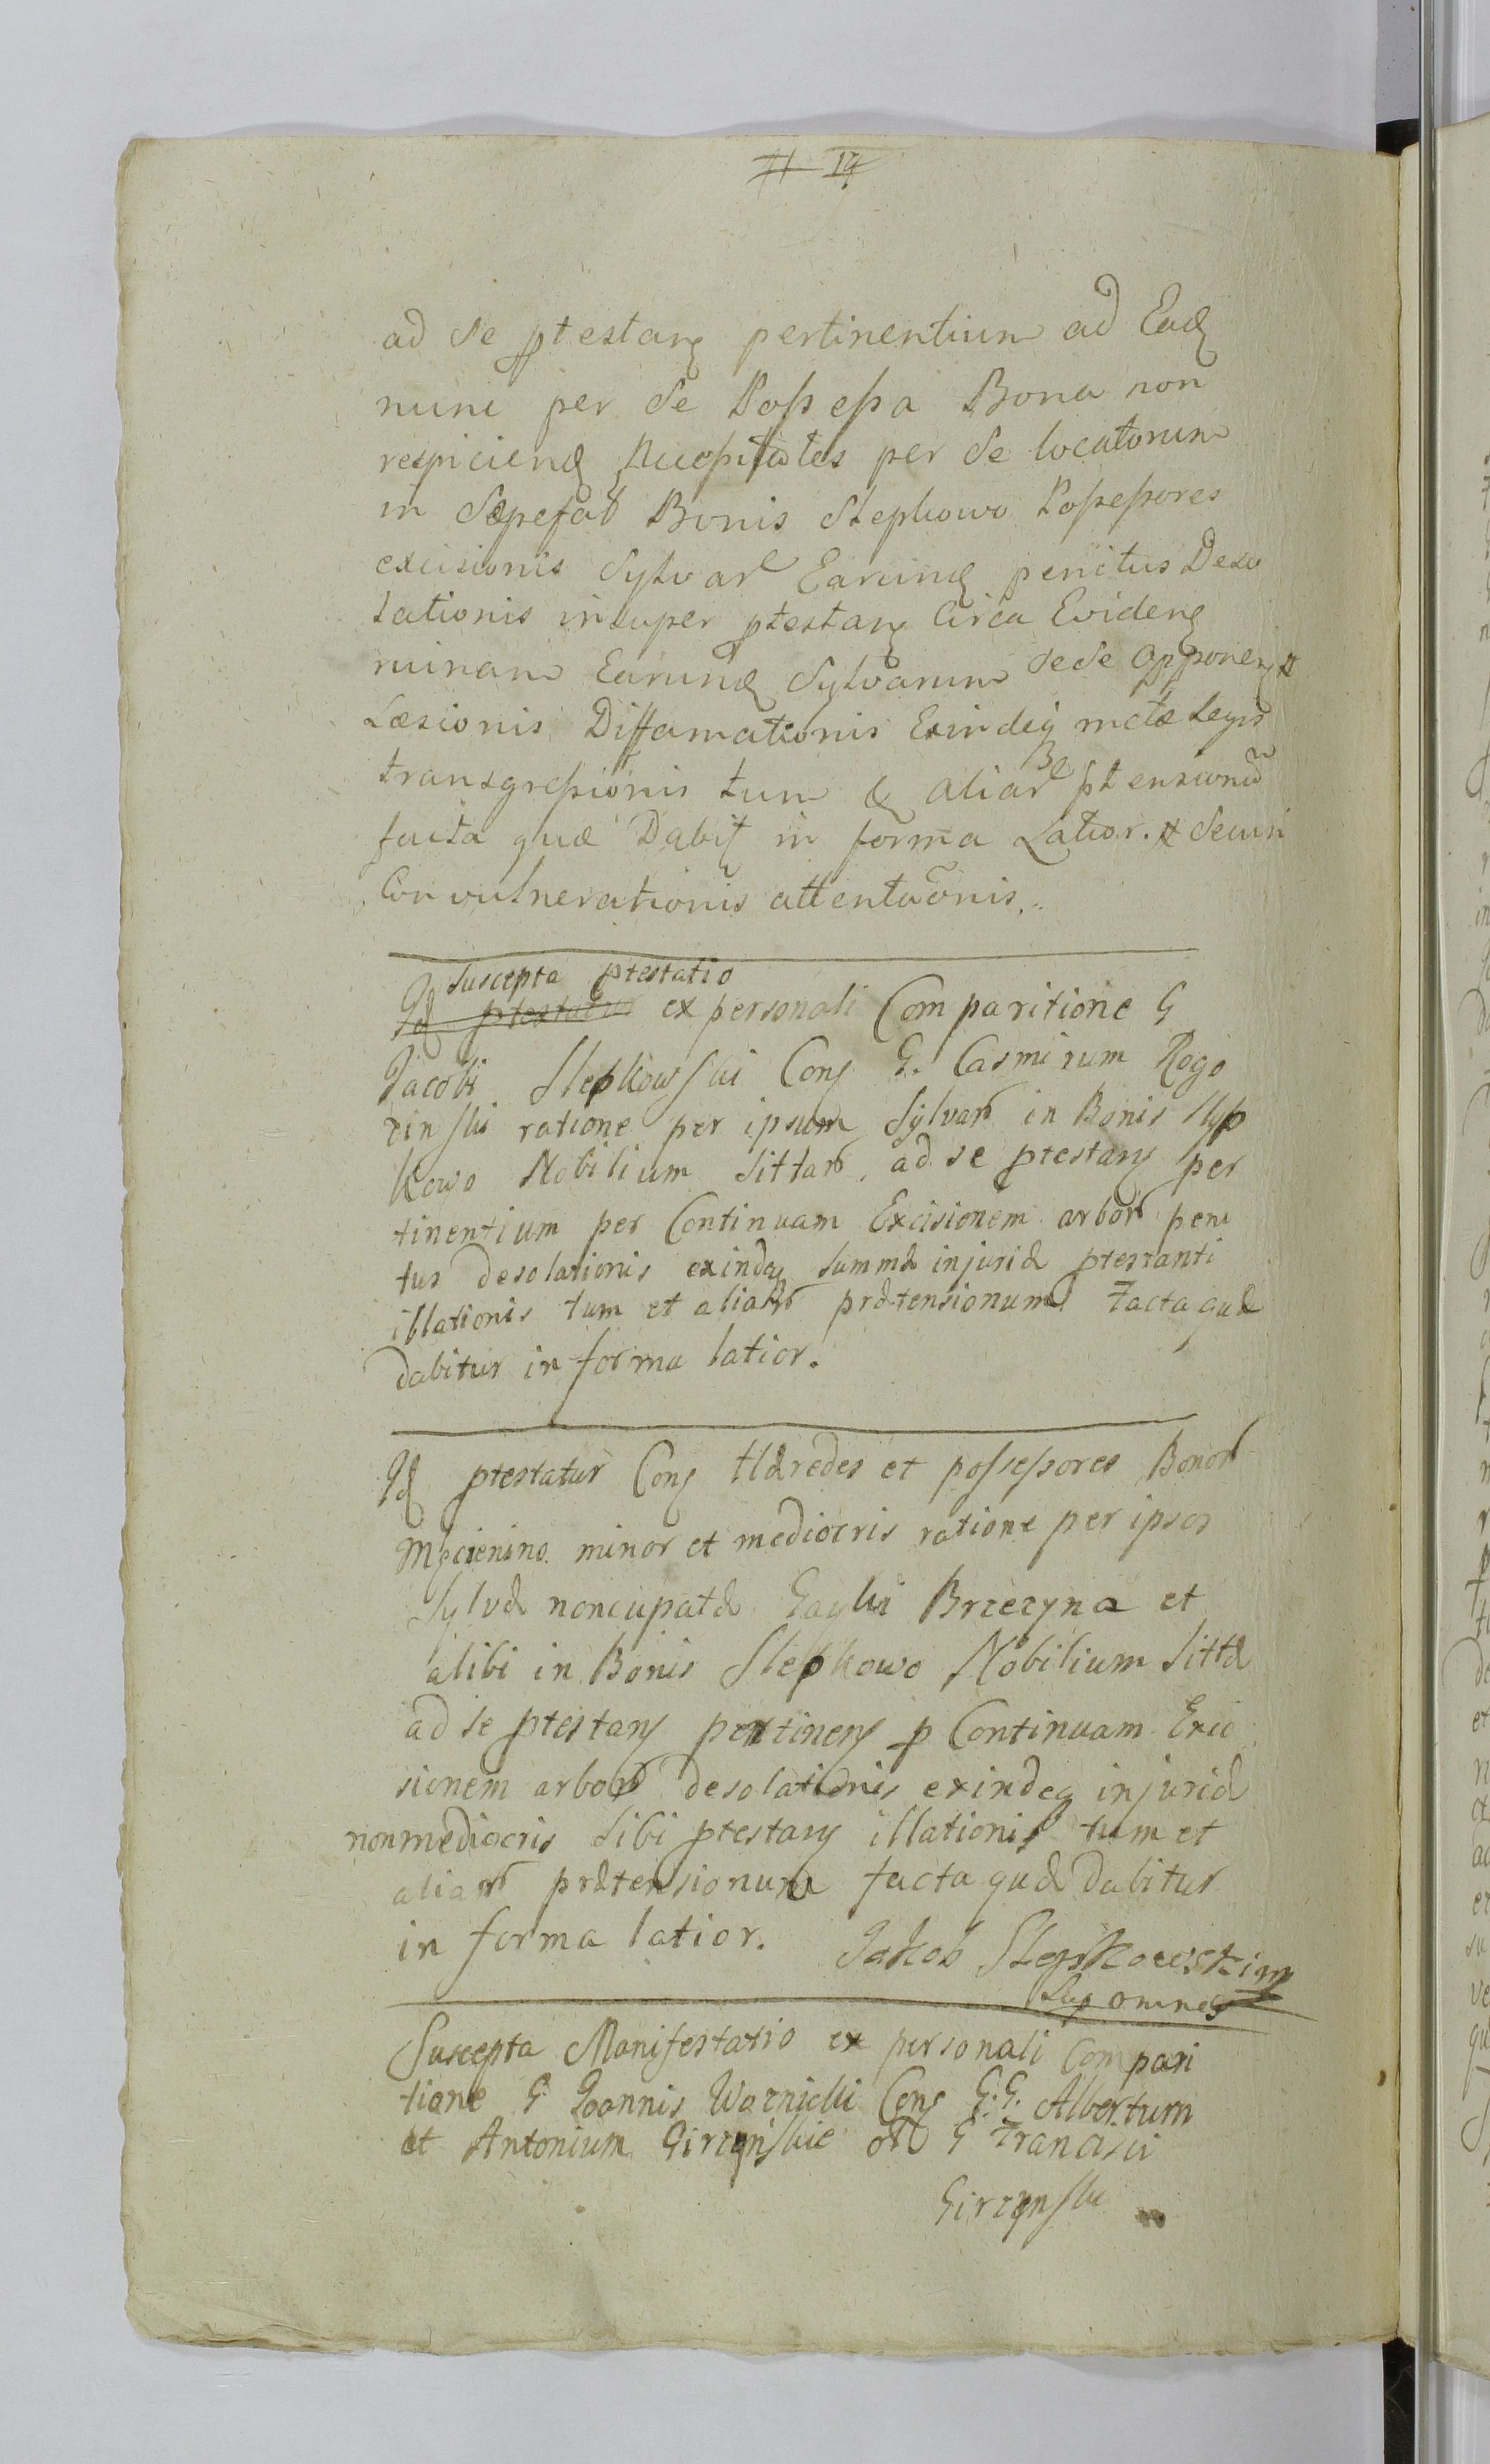 14
ad se ptestan pertinentium ad Ead
nunc per se Possessa Bona non
respiciend per se locatorum
in Sæpefat Bonis Slepkowo Possessores
excisionis Sylvar Earund penitus Deso
lationis insuper ptestan Circa Eviden
ruinam Earund Sylvarum sese Opponen
Læsionis Diffamationis Exindeq Legis
transgressionis tum & aliar ptensionu
facta quæ Dabit in forma Latior. Secun
Con vulnerationis attentaonis.
suscepta ptestatio
Id ptestatur ex personali Comparitione G
Jacobi Slepkowski Con G. Casmirum Rogo
zinski ratione per ipsum Sylvar in Bonis Slyp
kowo Nobilium Sittar ad se ptestan per
tinentium per Continuam Excisionem arbor peni
tus desolationis exindeq summæ injuriæ ptestanti
illationis tum et aliar prætensionum facta quæ
dabitur in forma latior.
Id ptestatur Con Hæredes et possessores Bonor
minor et mediocris ratione per ipsos
Sylvæ noncupatæ Brzezyna et
alibi in Bonis Slepkowo Nobilium Sittæ
ad se ptestan pertinen p Continuam Exci
sionem arbor desolationis exindeq injuriæ
nonmediocris sibi ptestan illationis tum et
aliar prætensionum facta quæ dabitur
in forma latior. Jakob Slepkowski mp
omnes
Suscepta Manifestatio ex personali Compari
tione G Joannis Con G.G. Albertum
et Antonium Girzynskie G Francisci
Girzynski